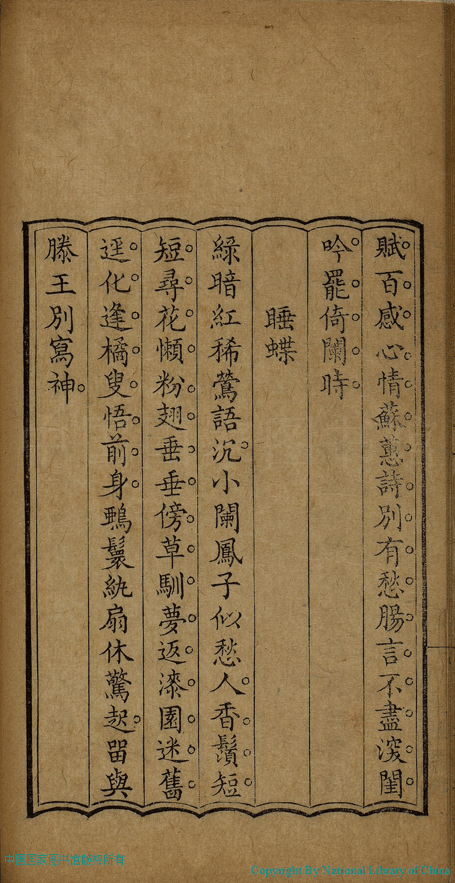 賦百感心情蘇蕙詩別有愁腸言不盡深閨
吟罷倚闌時
睡蝶
綠暗紅稀鶯語沉小闌鳳子似愁人香鬚短
短尋花懶粉翅垂垂傍草馴夢返漆園迷舊
逕化逢橘叟悟前身鴉鬟紈扇休驚起留與
滕王別寫神
Copyright By National Library of China